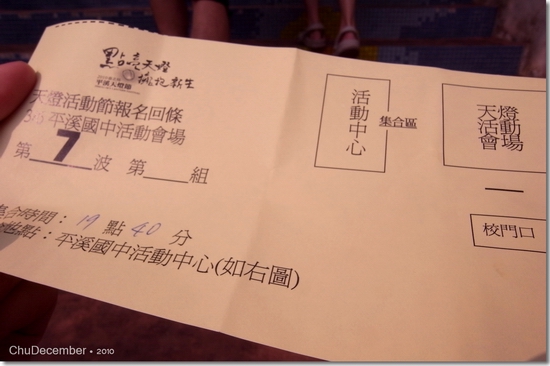 點亮天燈
擁抱新生
平溪天燈節
天燈活動節報名回條
平溪國中活動會場
第 7 波 第 組
集合時間：19 點 40 分
地點：平溪國中活動中心(如右圖)
活動中心
集合區
天燈活動會場
校門口
ChuDecember • 2010